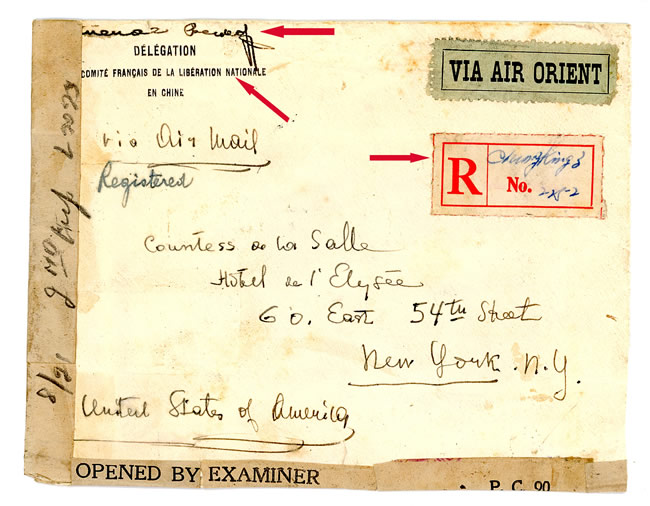 DÉLÉGATION
COMITÉ FRANÇAIS DE LA LIBÉRATION NATIONALE
EN CHINE
VIA AIR ORIENT
via Air Mail
Registered
R
Chungking
No.
Countess de la Salle
Hôtel de l'Elysée
60. East 54th Street
New York. N.Y.
United States of America
OPENED BY EXAMINER
P. C. 90